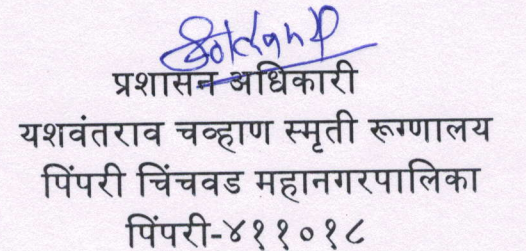 प्रशासन अधिकारी
यशवंतराव चव्हाण स्मृती रूग्णालय
पिंपरी चिंचवड महानगरपालिका
पिंपरी-४११०१८